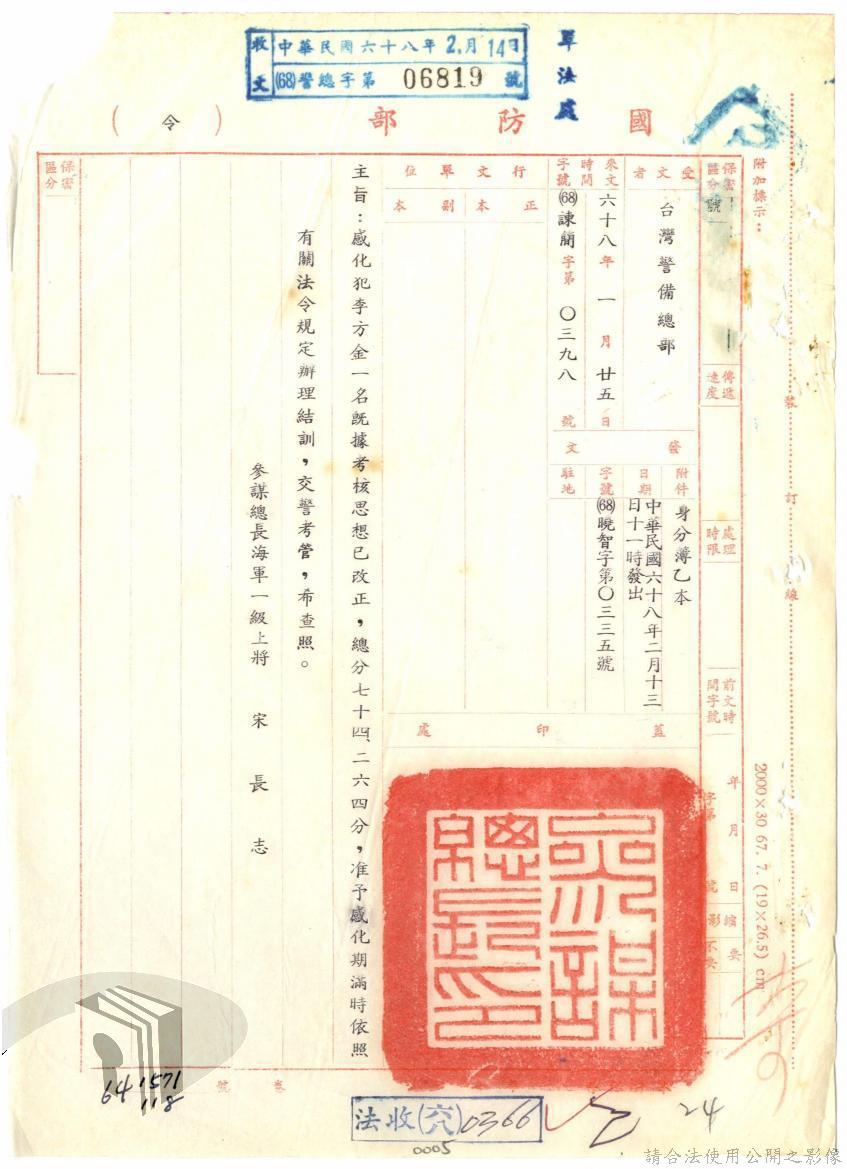 收文
中華民國六十八年2月14日
(68)警總字第06819號
軍法處
國防部
（令）
附加標示：
保密區分
號
傳遞速度
處理時限
前文時間字號
年月日
字第號
受文者
台灣警備總部
來文
時間
六十八年一月廿五日
字號
(68)諫簡字第〇三九八號
發文
附件
身分簿乙本
日期
中華民國六十八年二月十三日十一時發出
字號
(68)曉智字第〇三三五號
駐地
行文單位
正本
副本
蓋印處
參謀總長印
主旨：感化犯李方金一名既據考核思想已改正，總分七十四、二六四分，准予感化期滿時依照
有關法令規定辦理結訓，交警考管，希查照。
參謀總長海軍一級上將　宋長志
保密區分
裝訂線
2000×30 67. 7. (19×26.5) cm
卷號
641571
118
法收(六)0366
24
0005
請合法使用公開之影像